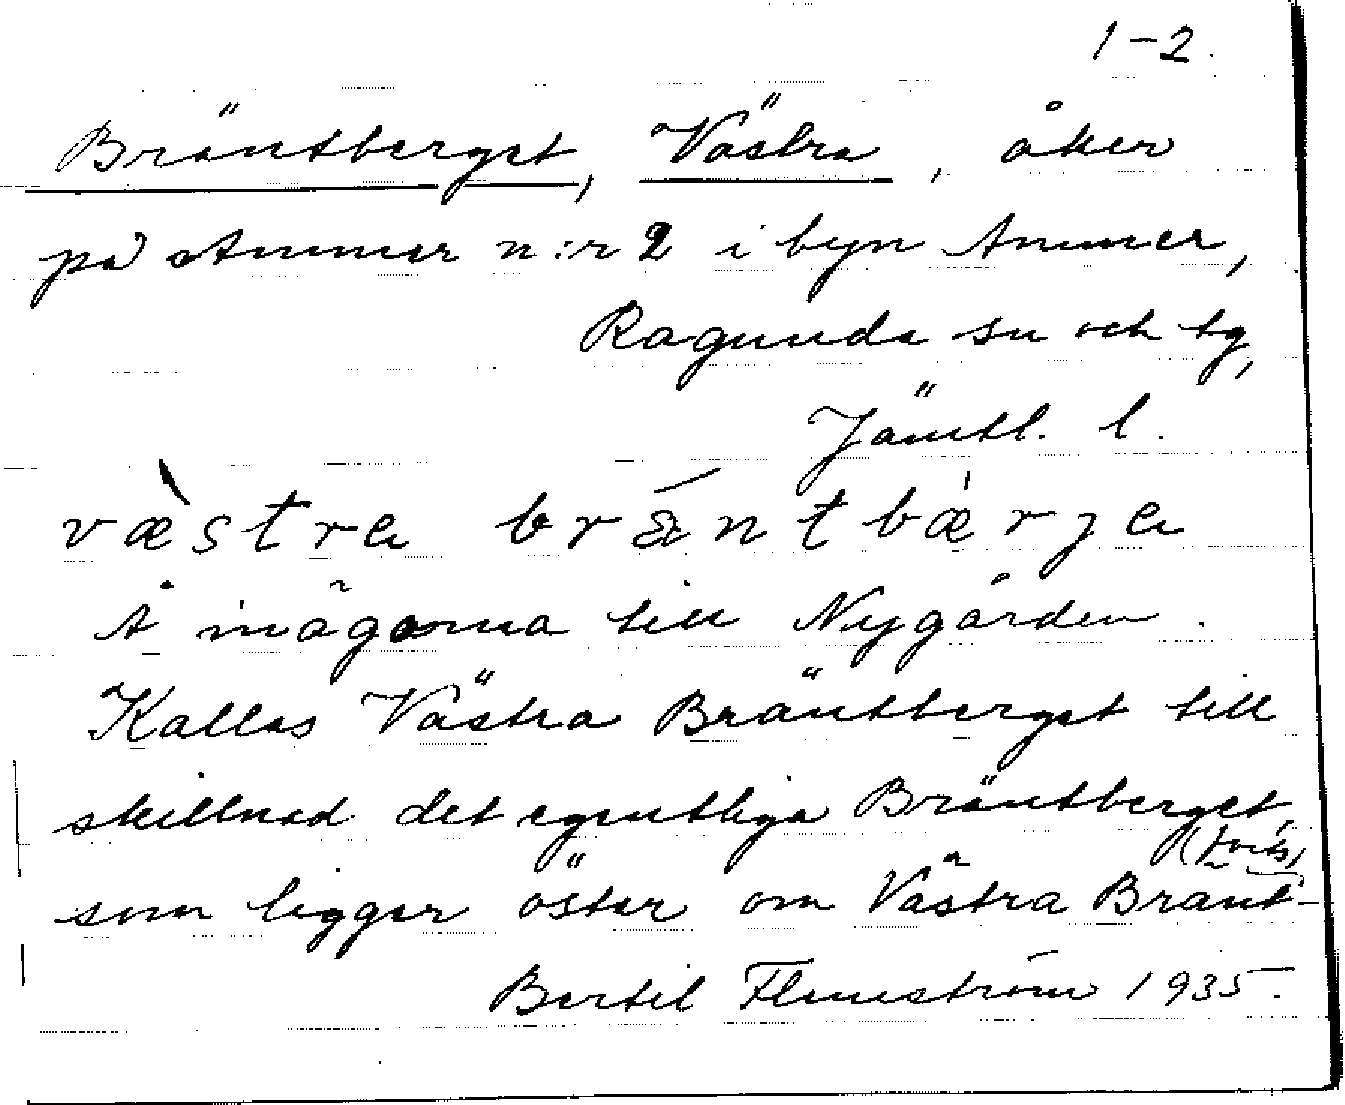 1-2.
Bräntberget, Västra, åker
på Ammer n:r 2 i byn Ammer,
Ragunda sn och tg,
Jämtl. l.
væ̀stra brǽntbæ̀rja
Å inägorna till Nygården.
Kallas Västra Bräntberget till
skillnad det egentliga Bräntberget,
som ligger öster om Västra Bränt-
(forts)
Bertil Flemström 1935.